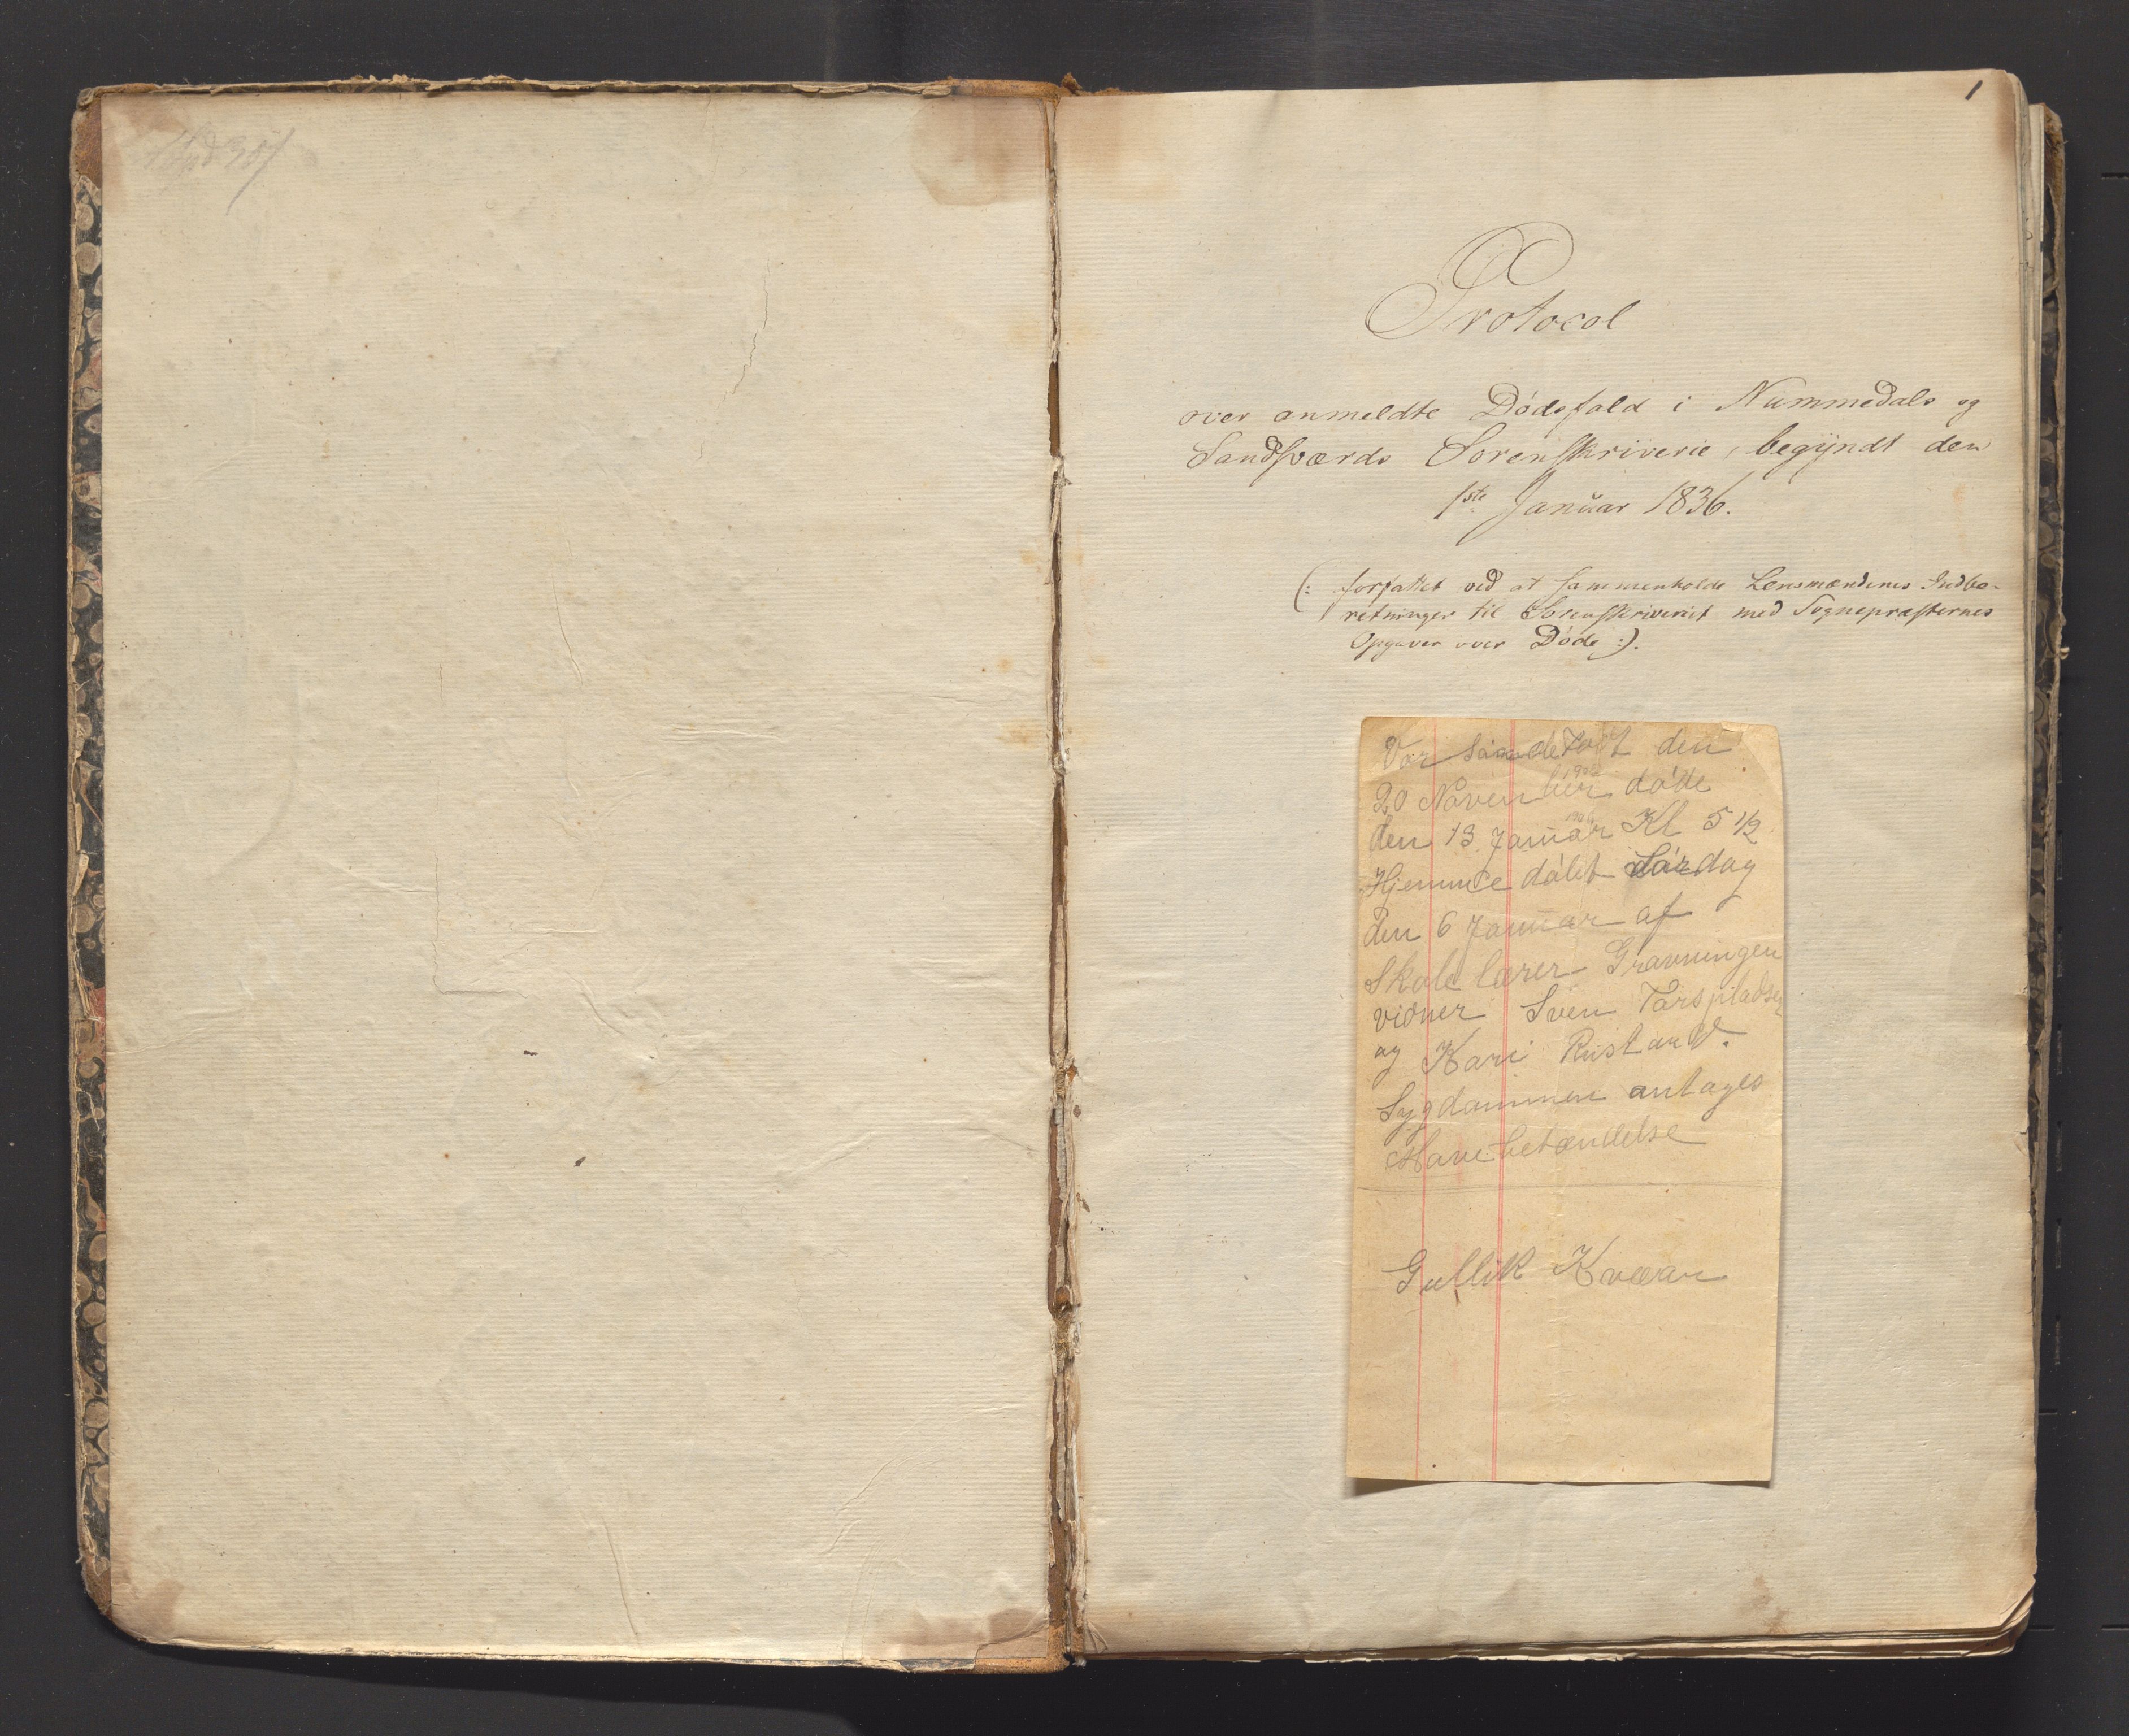 1
Protocol
over anmeldte Dødsfald i Nummedals og
Sandsværds Sorenskriverie, begyndt den
1ste Januar 1836.
(: forfattet ved at sammenholde Lensmændenes Indbe-
retninger til Sorenskriveriet med Sognepræsternes
Opgaver over Døde :).
Var den
20 November døde
den 13 Januar Kl 5 1/2
Hjemme døbt Lørdag
den 6 Januar af
Skolelærer Gravningen
vidner Sven
og Kari Rustand.
Sygdommen antages
Mavebetændelse
Gullik Kværn